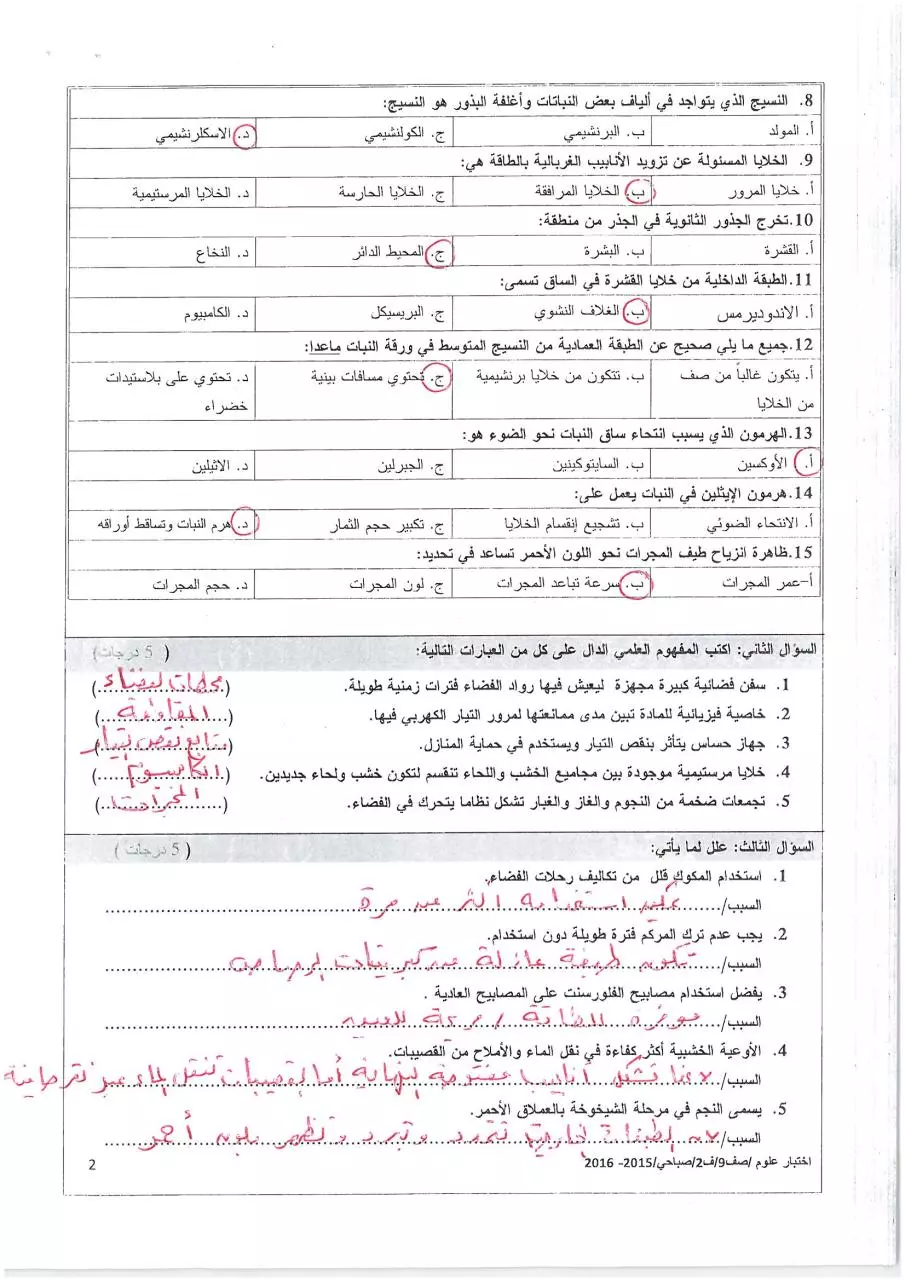 8. النسيج الذي يتواجد في ألياف بعض النباتات وأغلفة البذور هو النسيج:
أ. المولد ب. البرنشيمي ج. الكولنشيمي د. الاسكلرنشيمي
9. الخلايا المسئولة عن تزويد الأنابيب الغربالية بالطاقة هي:
أ. خلايا المرور ب. الخلايا المرافقة ج. الخلايا الحارسة د. الخلايا المرستيمية
10.تخرج الجذور الثانوية في الجذر من منطقة:
أ. القشرة ب. البشرة ج. المحيط الدائر د. النخاع
11.الطبقة الداخلية من خلايا القشرة في الساق تسمى:
أ. الاندوديرمس ب. الغلاف النشوي ج. البريسيكل د. الكامبيوم
12.جميع ما يلي صحيح عن الطبقة العمادية من النسيج المتوسط في ورقة النبات ماعدا:
أ. يتكون غالباً من صف ب. تتكون من خلايا برنشيمية ج. تحتوي مسافات بينية د. تحتوي على بلاستيدات
من الخلايا خضراء
13.الهرمون الذي يسبب انتحاء ساق النبات نحو الضوء هو:
أ. الأوكسين ب. السايتوكينين ج. الجبرلين د. الاثيلين
14.هرمون الإيثلين في النبات يعمل على:
أ. الانتحاء الضوئي ب. تشجيع إنقسام الخلايا ج. تكبير حجم الثمار د. هرم النبات وتساقط أوراقه
15.ظاهرة انزياح طيف المجرات نحو اللون الأحمر تساعد في تحديد:
أ-عمر المجرات ب. سرعة تباعد المجرات ج. لون المجرات د. حجم المجرات
السؤال الثاني: اكتب المفهوم العلمي الدال على كل من العبارات التالية: ( 5 درجات)
1. سفن فضائية كبيرة مجهزة ليعيش فيها رواد الفضاء فترات زمنية طويلة. (محطات الفضاء)
2. خاصية فيزيائية للمادة تبين مدى ممانعتها لمرور التيار الكهربي فيها. (المقاومة)
3. جهاز حساس يتأثر بنقص التيار ويستخدم في حماية المنازل. (قاطع نقص التيار)
4. خلايا مرستيمية موجودة بين مجاميع الخشب واللحاء تنقسم لتكون خشب ولحاء جديدين. (الكامبيوم)
5. تجمعات ضخمة من النجوم والغاز والغبار تشكل نظاما يتحرك في الفضاء. (المجرات)
السؤال الثالث: علل لما يأتي: ( 5 درجات )
1. استخدام المكوك قلل من تكاليف رحلات الفضاء.
السبب/ يمكن استخدامه اكثر من مرة
2. يجب عدم ترك المركم فترة طويلة دون استخدام.
السبب/ تكون طبقة عازلة من كبريتات الرصاص
3. يفضل استخدام مصابيح الفلورسنت على المصابيح العادية .
السبب/ موفرة للطاقة / مريحة للعين
4. الأوعية الخشبية أكثر كفاءة في نقل الماء والأملاح من القصيبات.
السبب/ لأنها تشكل أنابيب مفتوحة النهاية أما القصيبات تنقل الماء عبر
5. يسمى النجم في مرحلة الشيخوخة بالعملاق الأحمر.
السبب/ لأن الطبقات الخارجية تتمدد وتبرد وتظهر بلون أحمر
اختبار علوم /صف9/ف2/صباحي/2015- 2016 2